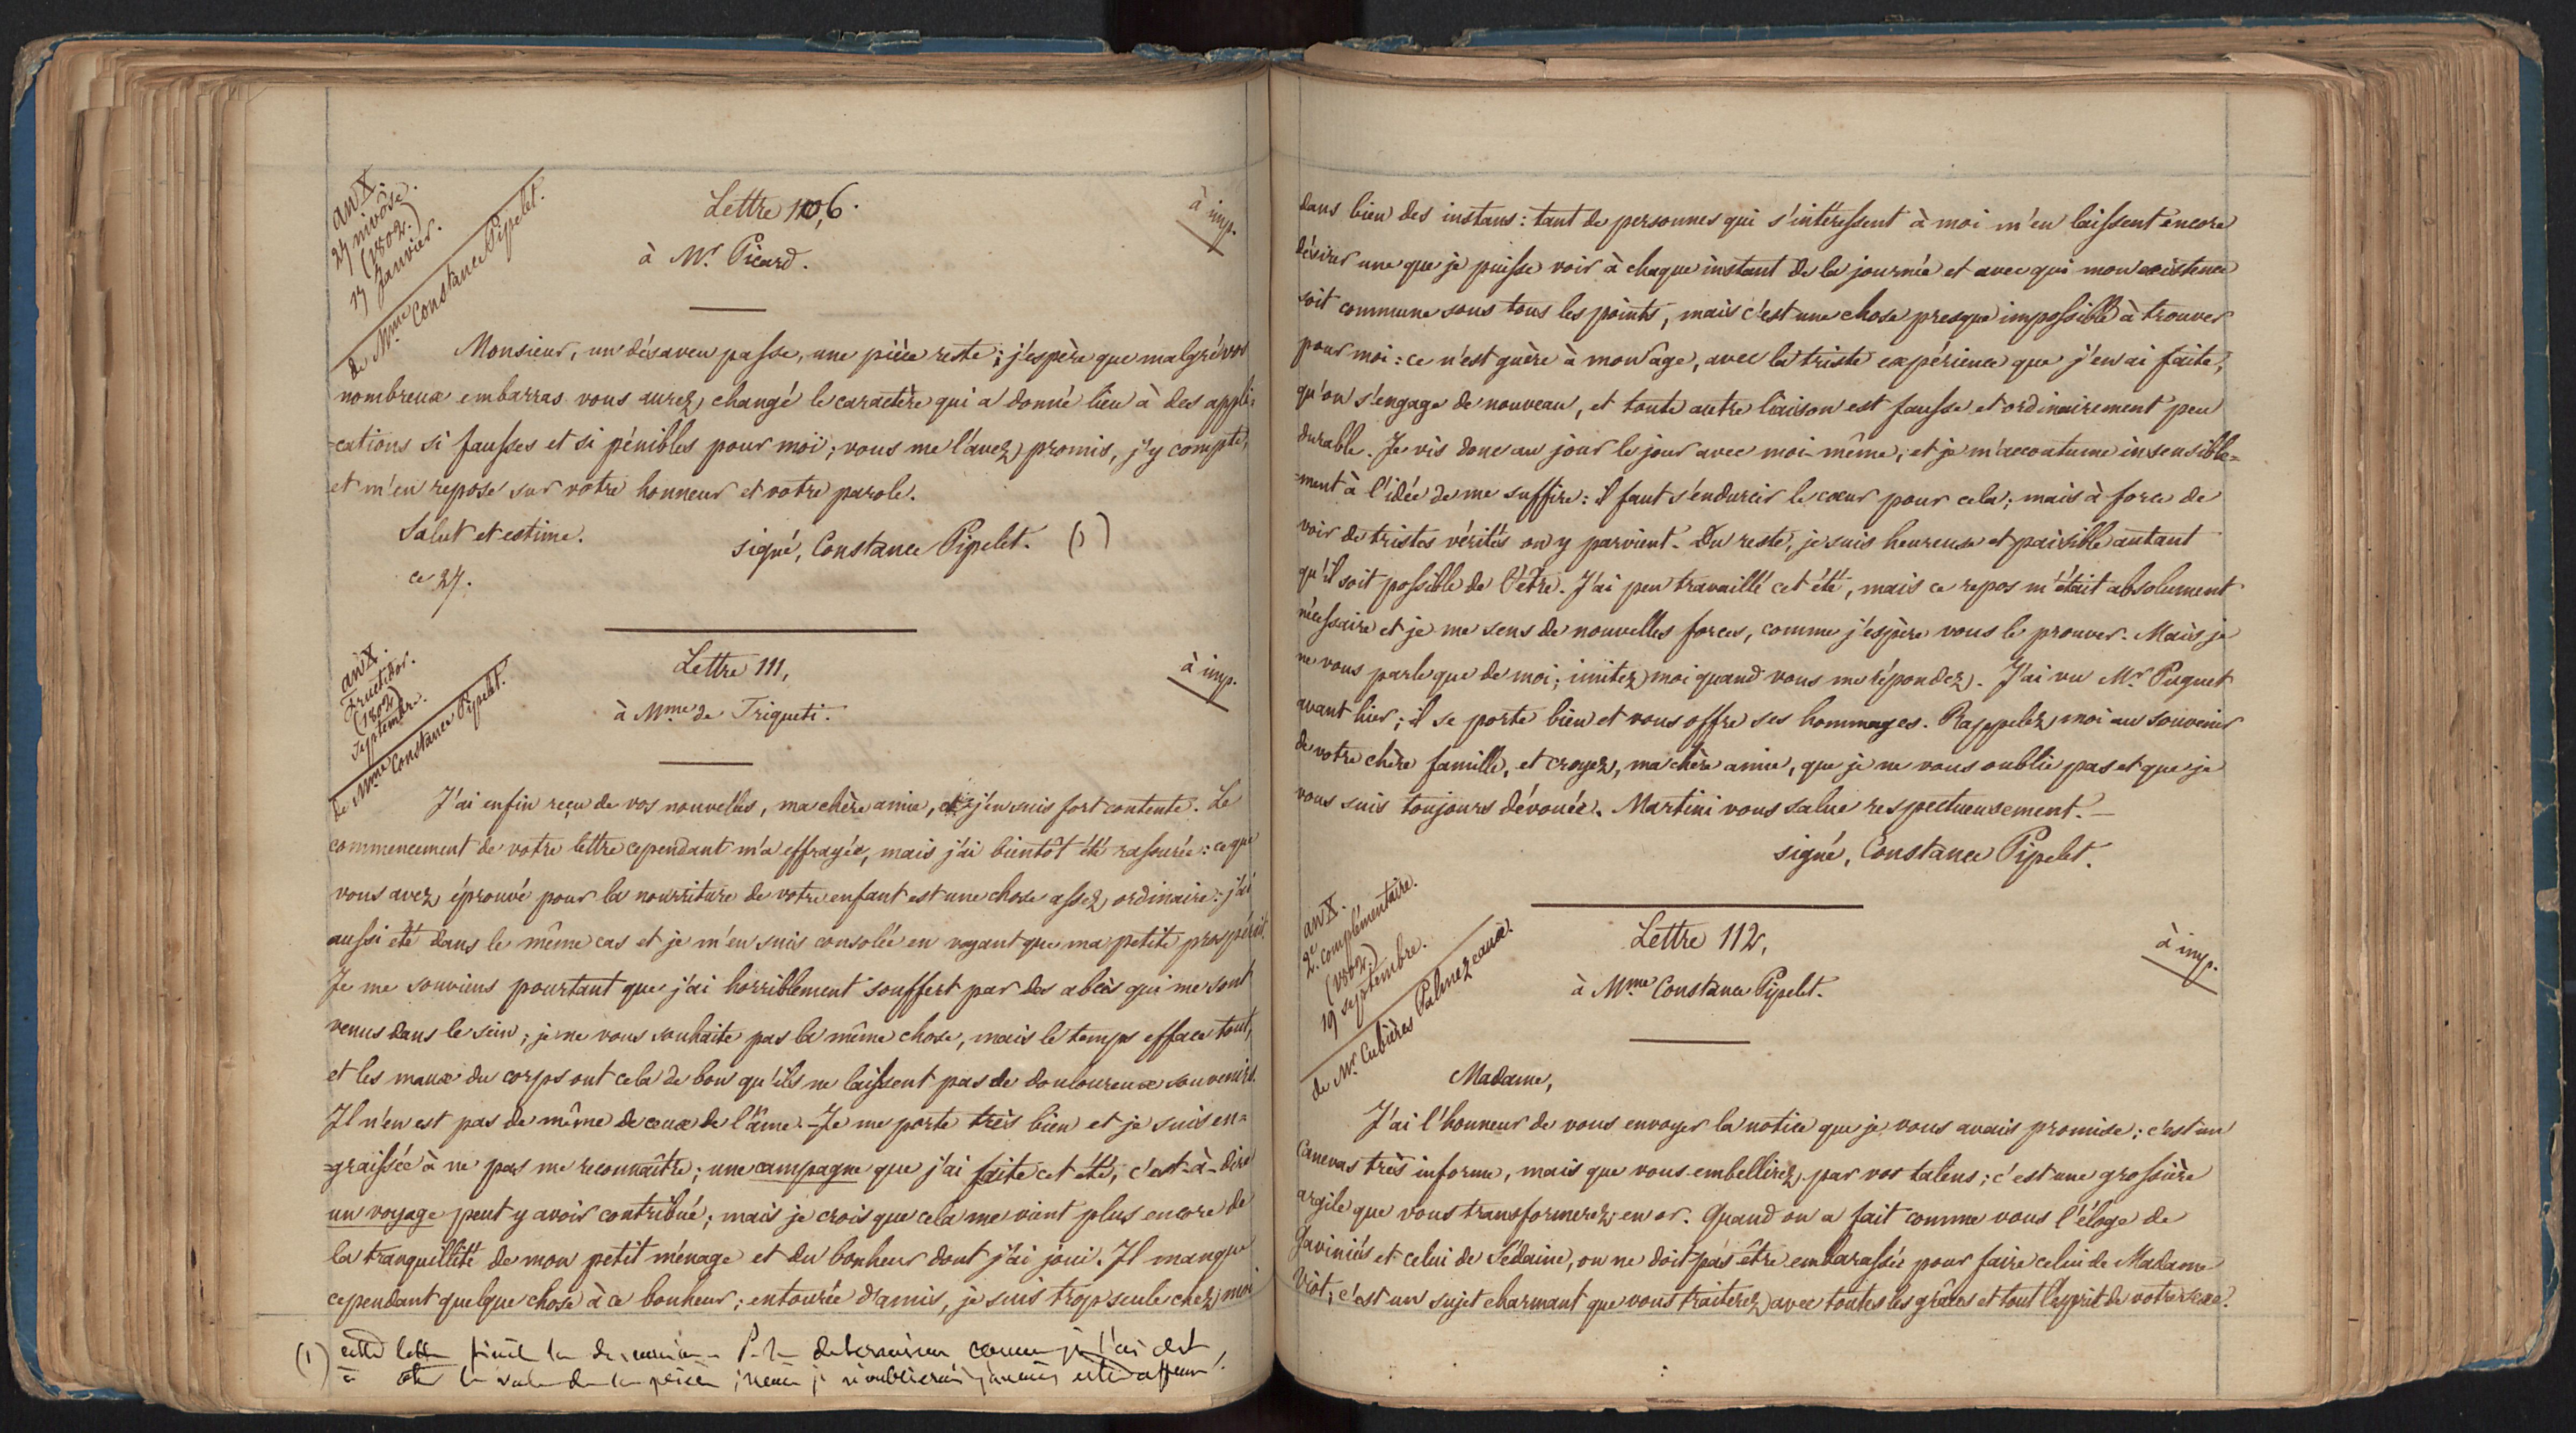 an X.
27 nivôse.
(1802.)
17 Janvier.
de Mme Constance Pipelet.
Lettre 106.
à imp.
à Mr. Picard.
Monsieur, un désaveu passe, une pièce reste; j'espère que malgré vos
nombreux embarras vous aurez changé le caractère qui a donné lieu à des appli-
-cations si fausses et si pénibles pour moi; vous me l'avez promis, j'y compte,
et m'en repose sur votre honneur et votre parole.
Salut et estime.
signé, Constance Pipelet. (1)
ce 27.
an X.
Fructidor.
(1802)
Septembre.
de Mme Constance Pipelet.
Lettre 111,
à imp.
à Mme de Triqueti.
J'ai enfin reçu de vos nouvelles, ma chère amie, et j'en suis fort contente. Le
commencement de votre lettre cependant m'a effrayée, mais j'ai bientôt été rassurée: ce que
vous avez éprouvé pour la nourriture de votre enfant est une chose assez ordinaire: j'ai
aussi été dans le même cas et je m'en suis consolée en voyant que ma petite prospérait.
Je me souviens pourtant que j'ai horriblement souffert par des abcès qui me sont
venus dans le sein; je ne vous souhaite pas la même chose, mais le temps efface tout,
et les maux du corps ont cela de bon qu'ils ne laissent pas de douloureux souvenirs.
Il n'en est pas de même de ceux de l'âme. - Je me porte très bien et je suis en-
-graissée à ne pas me reconnaître; une campagne que j'ai faite cet été, c'est-à-dire
un voyage peut y avoir contribué; mais je crois que cela me vient plus encore de
la tranquillité de mon petit ménage et du bonheur dont j'ai joui. Il manque
cependant quelque chose à ce bonheur; entourée d'amis, je suis trop seule chez moi
(1) cette lettre comme je l'ai dit
à ôter de la pièce, je n'oublierai jamais cette affaire!
dans bien des instans: tant de personnes qui s'intéressent à moi m'en laissent encore
désirer une que je puisse voir à chaque instant de la journée et avec qui mon existence
soit commune sous tous les points, mais c'est une chose presque impossible à trouver
pour moi: ce n'est guère à mon âge, avec la triste expérience que j'en ai faite,
qu'on s'engage de nouveau, et toute autre liaison est fausse et ordinairement peu
durable. Je vis donc au jour le jour avec moi-même, et je m'accoutume insensible-
-ment à l'idée de me suffire: il faut s'endurcir le cœur pour cela; mais à force de
voir de tristes vérités on y parvient. Du reste, je suis heureuse et paisible autant
qu'il soit possible de l'être. J'ai peu travaillé cet été, mais ce repos m'était absolument
nécessaire et je me sens de nouvelles forces, comme j'espère vous le prouver. Mais je
ne vous parle que de moi; imitez moi quand vous me répondez. J'ai vu Mr Puguet
avant hier; il se porte bien et vous offre ses hommages. Rappelez moi au souvenir
de votre chère famille, et croyez, ma chère amie, que je ne vous oublie pas et que je
vous suis toujours dévouée. Martini vous salue respectueusement. -
signé, Constance Pipelet.
an X.
2e. complémentaire.
(1802.)
19 septembre.
de Mr. Cubières Palmezeaux.
Lettre 112,
à imp.
à Mme Constance Pipelet.
Madame,
J'ai l'honneur de vous envoyer la notice que je vous avais promise; c'est un
canevas très informe, mais que vous embellirez par vos talens; c'est une grossière
argile que vous transformerez en or. Quand on a fait comme vous l'éloge de
Gaviniés et celui de Sédaine, on ne doit pas être embarassée pour faire celui de Madame
Viot; c'est un sujet charmant que vous traiterez avec toutes les grâces et tout l'esprit de votre sexe.